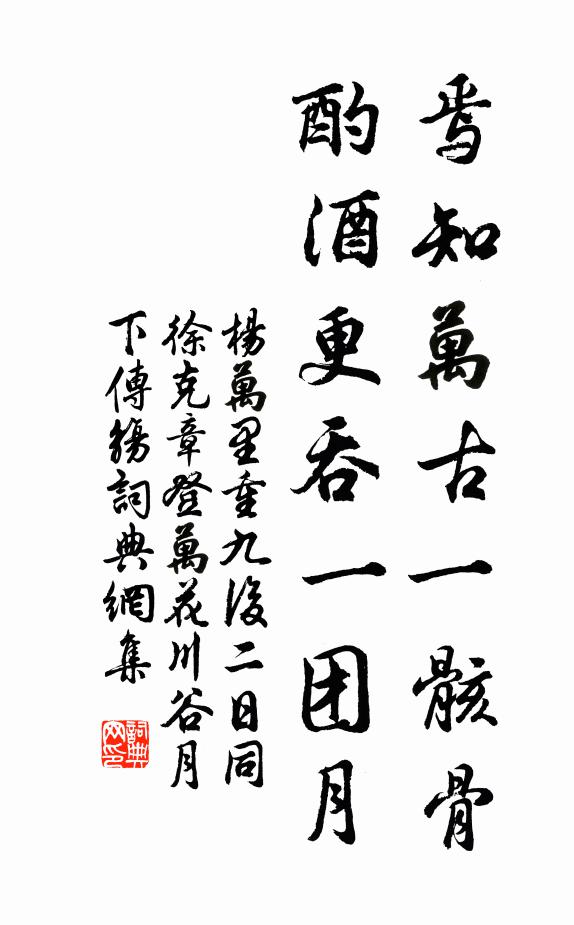 焉知萬古一骸骨
酌酒更吞一团月
楊萬里重九後二日同
徐克章登萬花川谷月
下傳觴詞典網集
詞典
网印